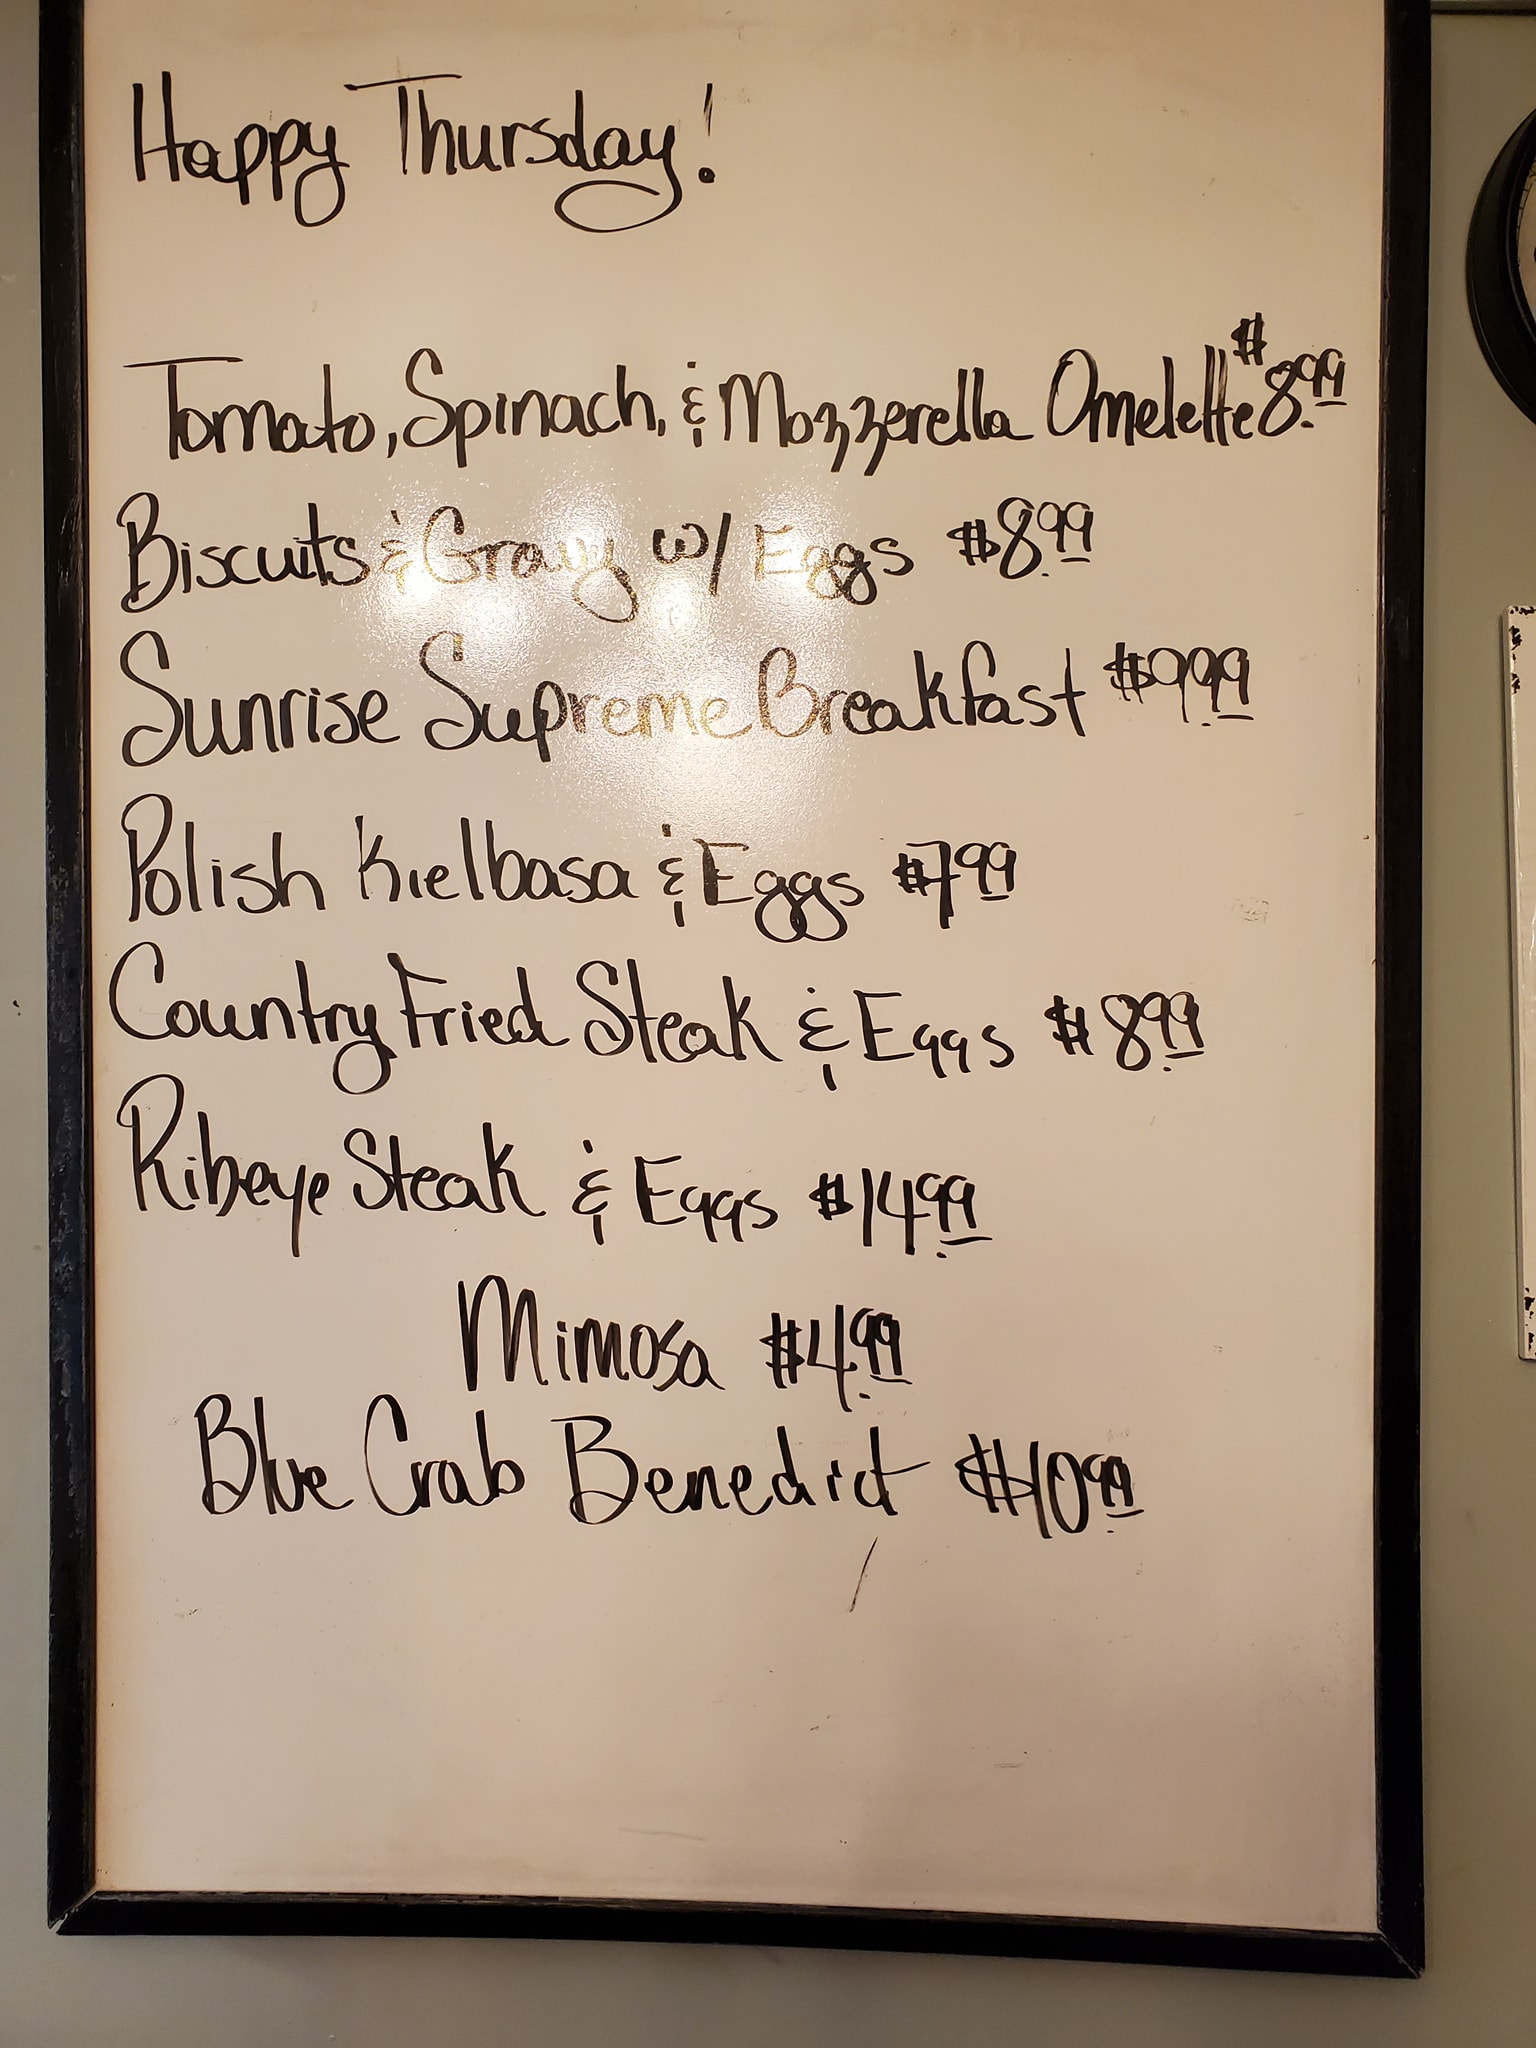 Happy Thursday!
Tomato, Spinach, & Mozzerella Omelette $8.99
Biscuits & Gravy w/ Eggs $8.99
Sunrise Supreme Breakfast $9.99
Polish Kielbasa & Eggs $7.99
Country Fried Steak & Eggs $8.99
Ribeye Steak & Eggs $14.99
Mimosa $4.99
Blue Crab Benedict $10.99